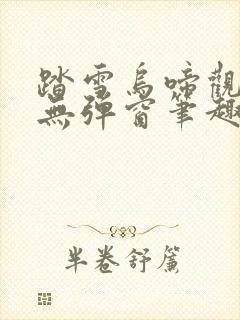 踏雪烏啼觀
無彈窗筆趣
半卷舒簾